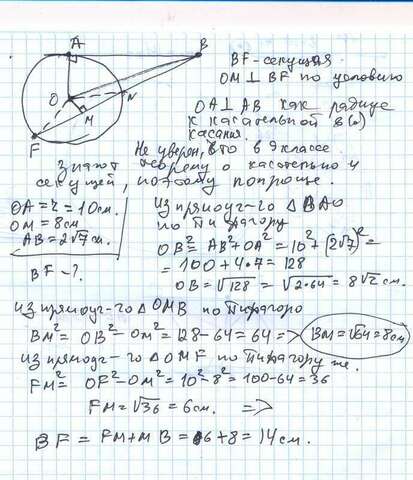 A
B
O
M
N
F
BF - секущая
OM ⊥ BF по условию
OA ⊥ AB как радиус
к касательной в (.)
касания.
Не уверен, что в 9 классе
знают теорему о касательной и
секущей, поэтому попроще.
OA = r = 10см.
OM = 8см
AB = 2√7 см.
BF - ?
Из прямоуг-го △ BAO
по Пифагору
OB² = AB² + OA² = 10² + (2√7)² =
= 100 + 4·7 = 128
OB = √128 = √2·64 = 8√2 см.
Из прямоуг-го △ OMB по Пифагору
BM² = OB² - OM² = 128 - 64 = 64 => BM = √64 = 8см
Из прямоуг-го △ OMF по Пифагору же.
FM² = OF² - OM² = 10² - 8² = 100 - 64 = 36
FM = √36 = 6см. =>
BF = FM + MB = 6 + 8 = 14 см.